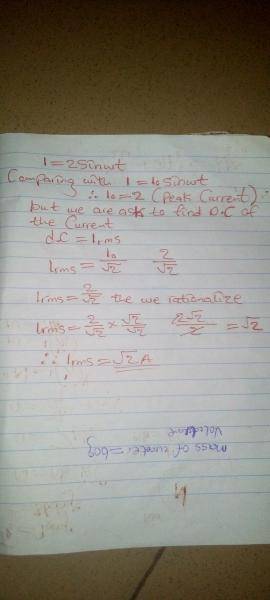 I = 2Sinwt
Comparing with I = I₀Sinwt
∴ I₀ = 2 (Peak Current).
but we are ask to find D.C of
the Current
d.C = Irms
Irms = I₀/√2 2/√2
Irms = 2/√2 the we rationalize
Irms = 2/√2 × √2/√2 2√2/2 = √2
∴ Irms = √2 A
mass of = 60g